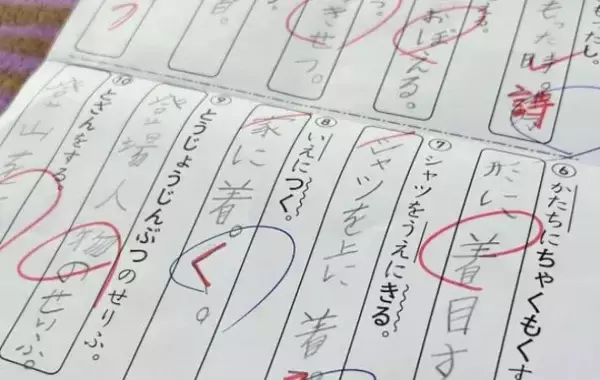 もった時。
詩
おぼえる。
きせつ。
⑥かたちにちゃくもくす
形に着目す
⑦シャツをうえにきる。
シャツを上に着。
⑧いえにつく。
家に着。
く。
⑨とうじょうじんぶつのせりふ。
登場人物のせりふ。
⑩とざんをする。
登山を